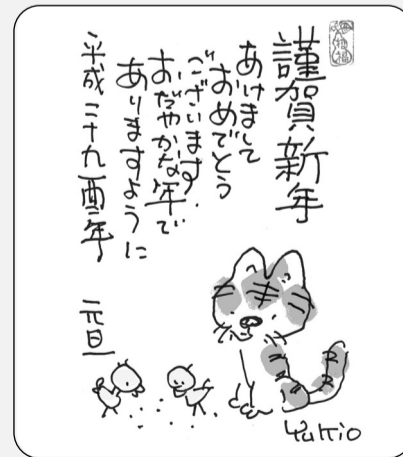 謹賀新年
あけまして
おめでとう
ございます。
おだやかな年で
ありますように
平成二十九酉年
元旦
Yukio